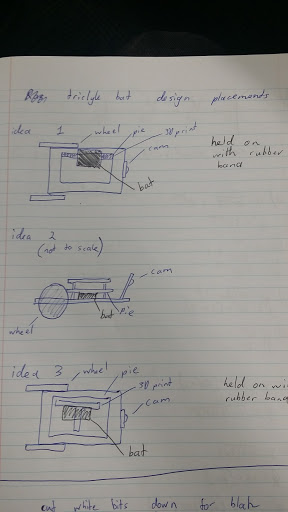 tricycle bat design placements
idea 1
wheel
pie
3D print
cam
held on
with rubber
band
bat
idea 2
(not to scale)
cam
bat
pie
wheel
idea 3
wheel
pie
3D print
cam
held on wi
rubber band
bat
cut white bits down for